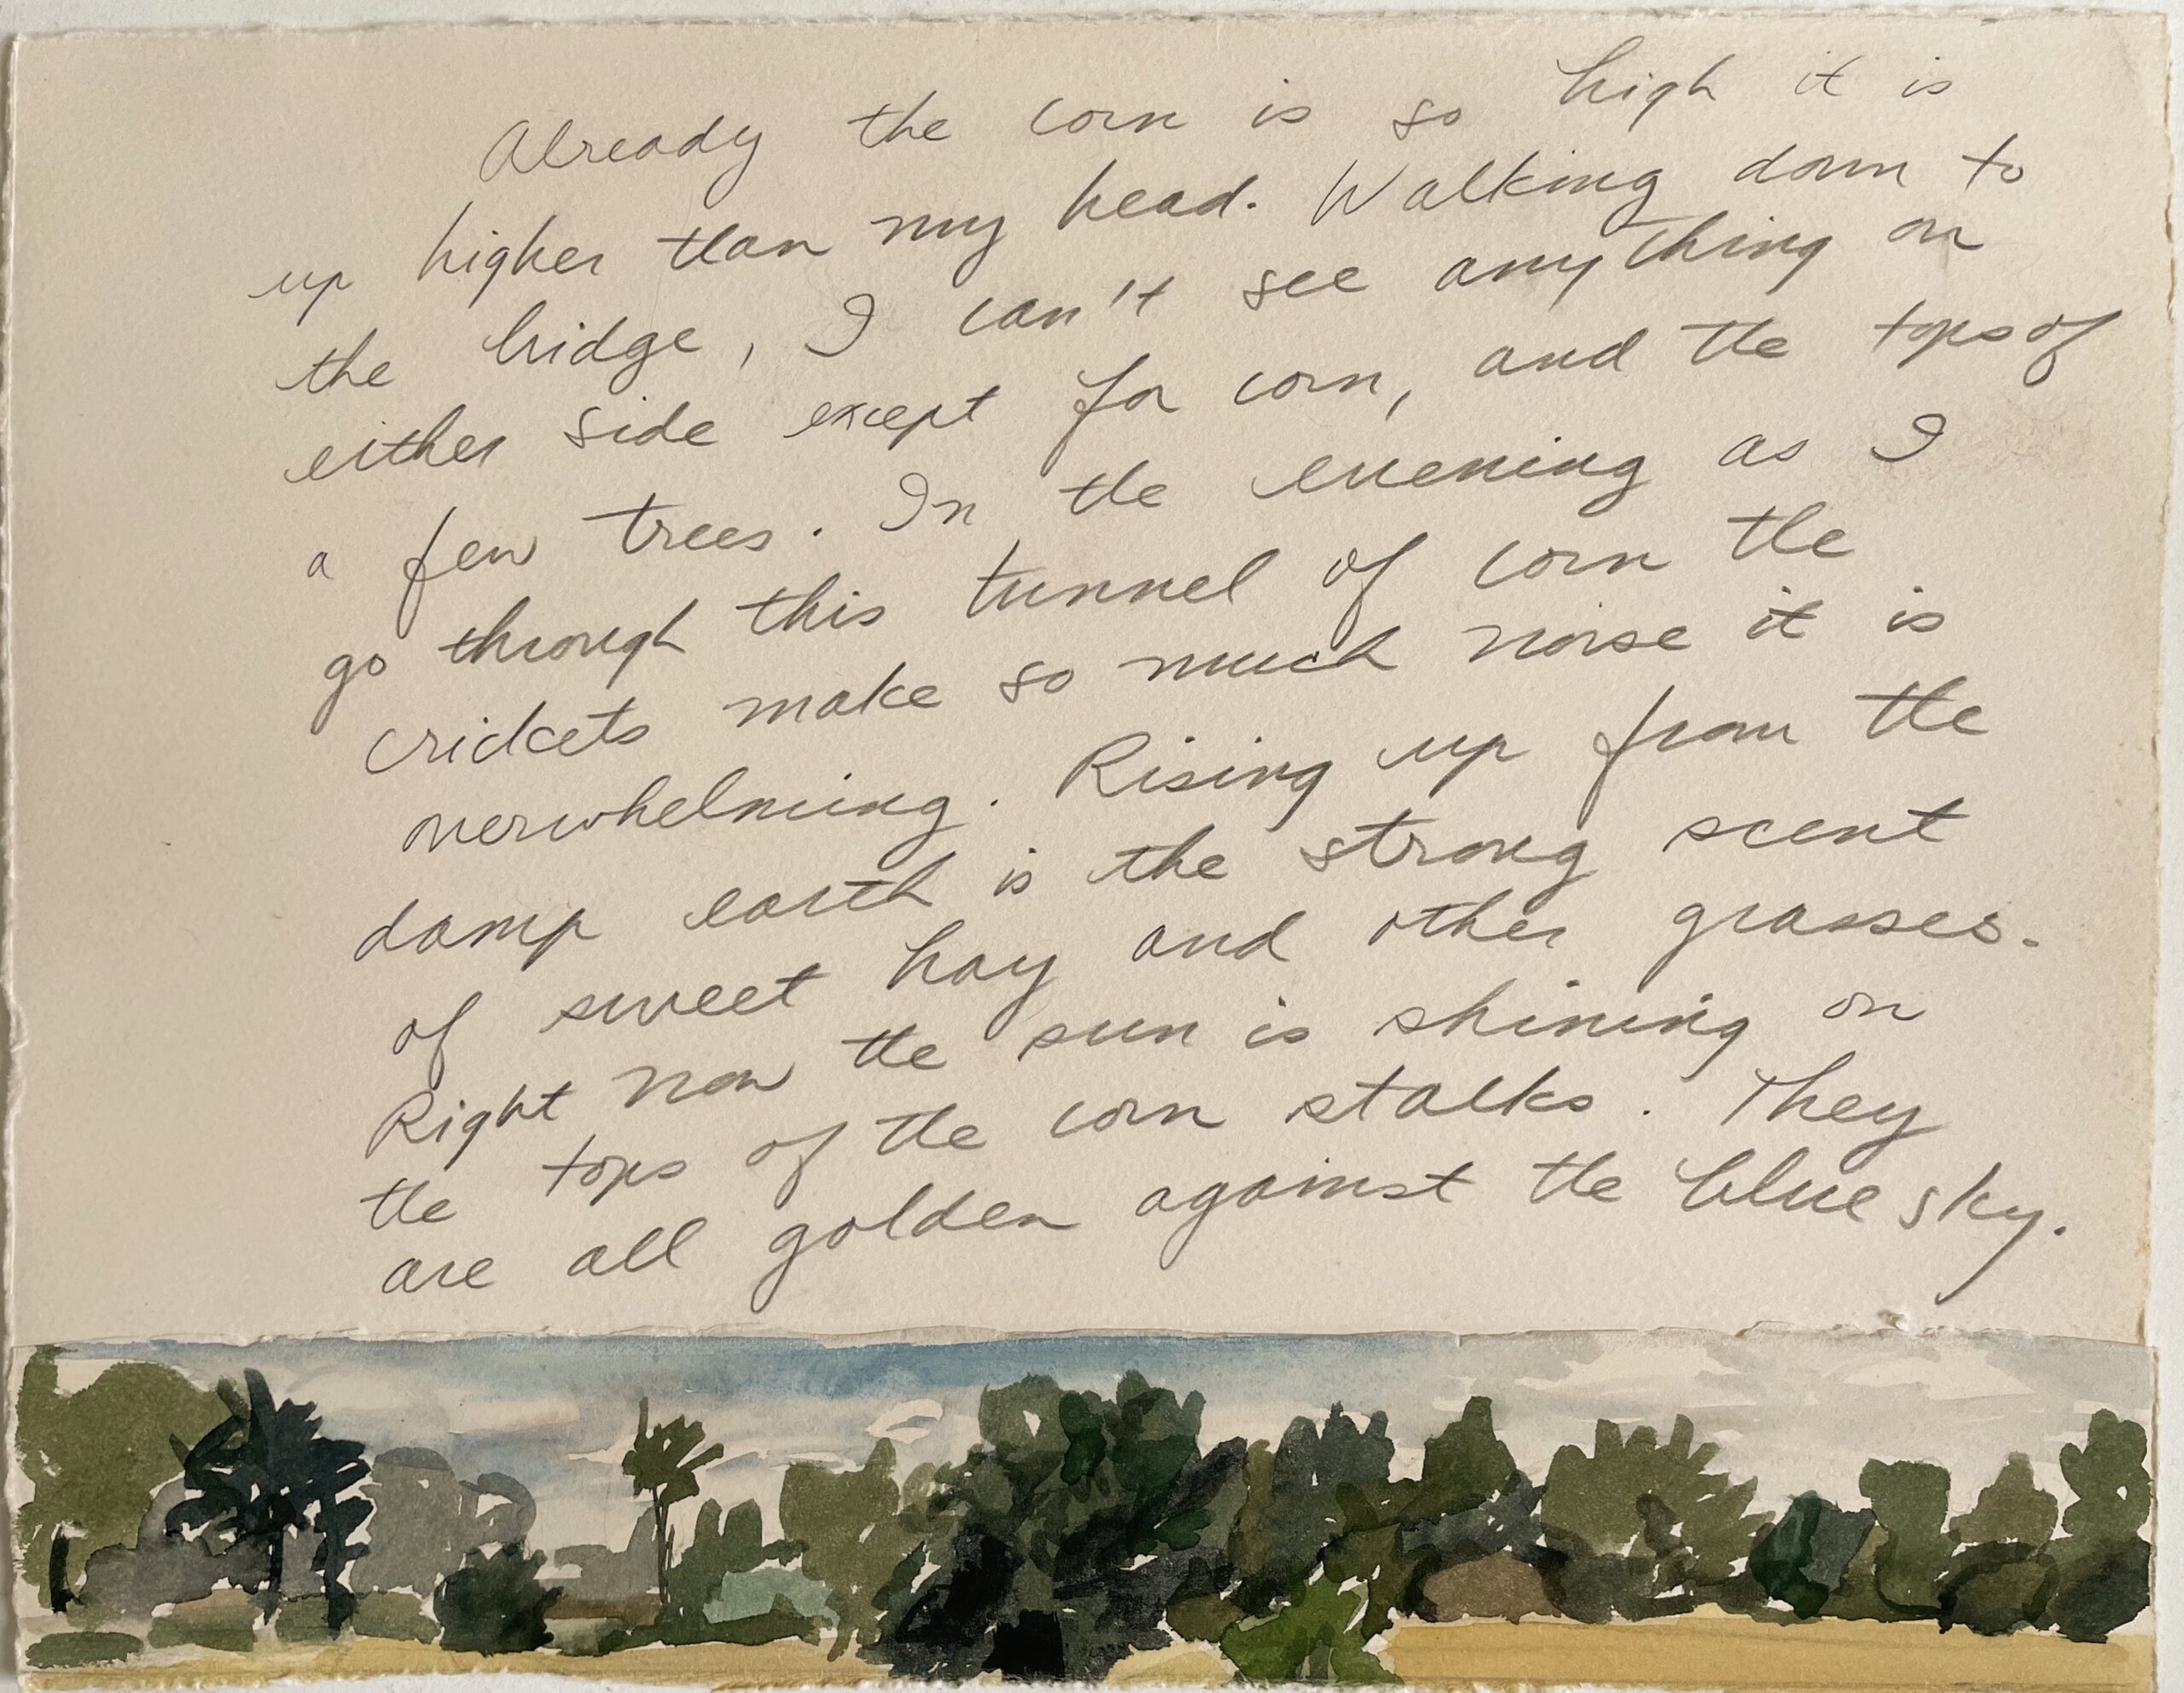 Already the corn is so high it is
up higher than my head. Walking down to
the bridge, I can't see anything on
either side except for corn, and the tops of
a few trees. In the evening as I
go through this tunnel of corn the
crickets make so much noise it is
overwhelming. Rising up from the
damp earth is the strong scent
of sweet hay and other grasses.
Right now the sun is shining on
the tops of the corn stalks. They
are all golden against the blue sky.